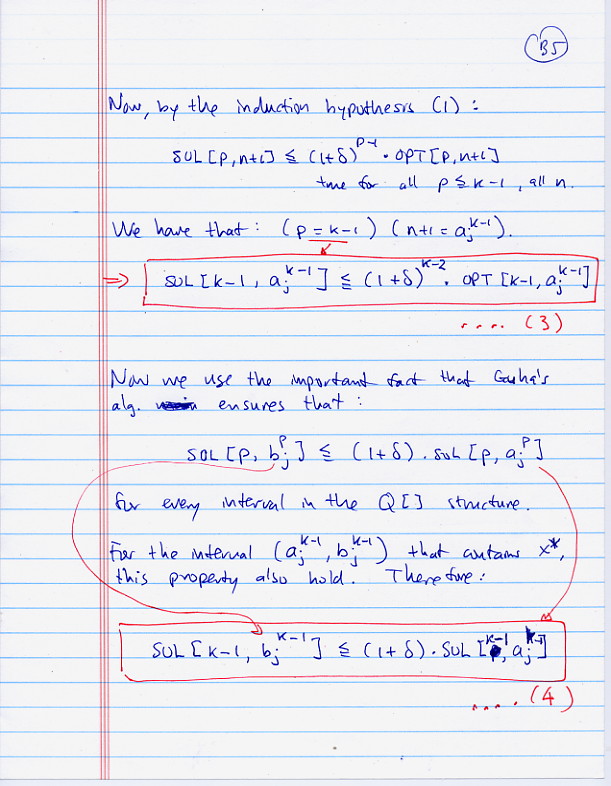 B5
Now, by the induction hypothesis (1) :
SOL [p, n+1] ≤ (1+δ)^{p-1} · OPT [p, n+1]
true for all p ≤ k-1, all n.
We have that : (p = k-1) (n+1 = a_j^{k-1}).
⇒ SOL [k-1, a_j^{k-1}] ≤ (1+δ)^{k-2} · OPT [k-1, a_j^{k-1}]
.... (3)
Now we use the important fact that Guha's
alg. ensures that :
SOL [p, b_j^p] ≤ (1+δ) . SOL [p, a_j^p]
for every interval in the Q[] structure.
For the interval (a_j^{k-1}, b_j^{k-1}) that contains x*,
this property also hold. Therefore :
SOL [k-1, b_j^{k-1}] ≤ (1+δ) . SOL [k-1, a_j^{k-1}]
.... (4)